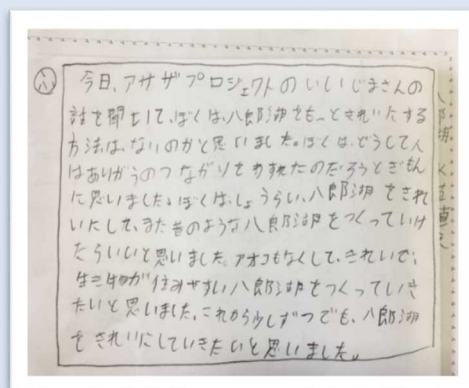 今日、アサザプロジェクトのいいじまさんの
話を聞いて、ぼくは、八郎湖をもっときれいにする
方法は、ないのかと思いました。ぼくは、どうして人
はありがうのつながりをわすれたのだろうとぎもん
に思いました。ぼくは、しょうらい、八郎湖をきれ
いにして、また昔のような八郎湖をつくっていけ
たらいいと思いました。アオコもなくして、きれいで、
生き物が住みやすい八郎湖をつくっていき
たいと思いました。これから少しずつでも、八郎湖
をきれいにしていきたいと思いました。
八郎湖